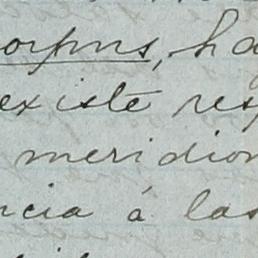 orpus, ha
existe resp
meridion
ncia á las